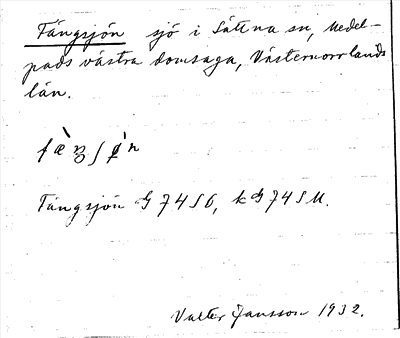 Fängsjön sjö i Sättna sn, Medel-
pads västra domsaga, Västernorrlands
län.
Fängsjön G 74 S6, k G 74 S M.
Valter Jansson 1932.